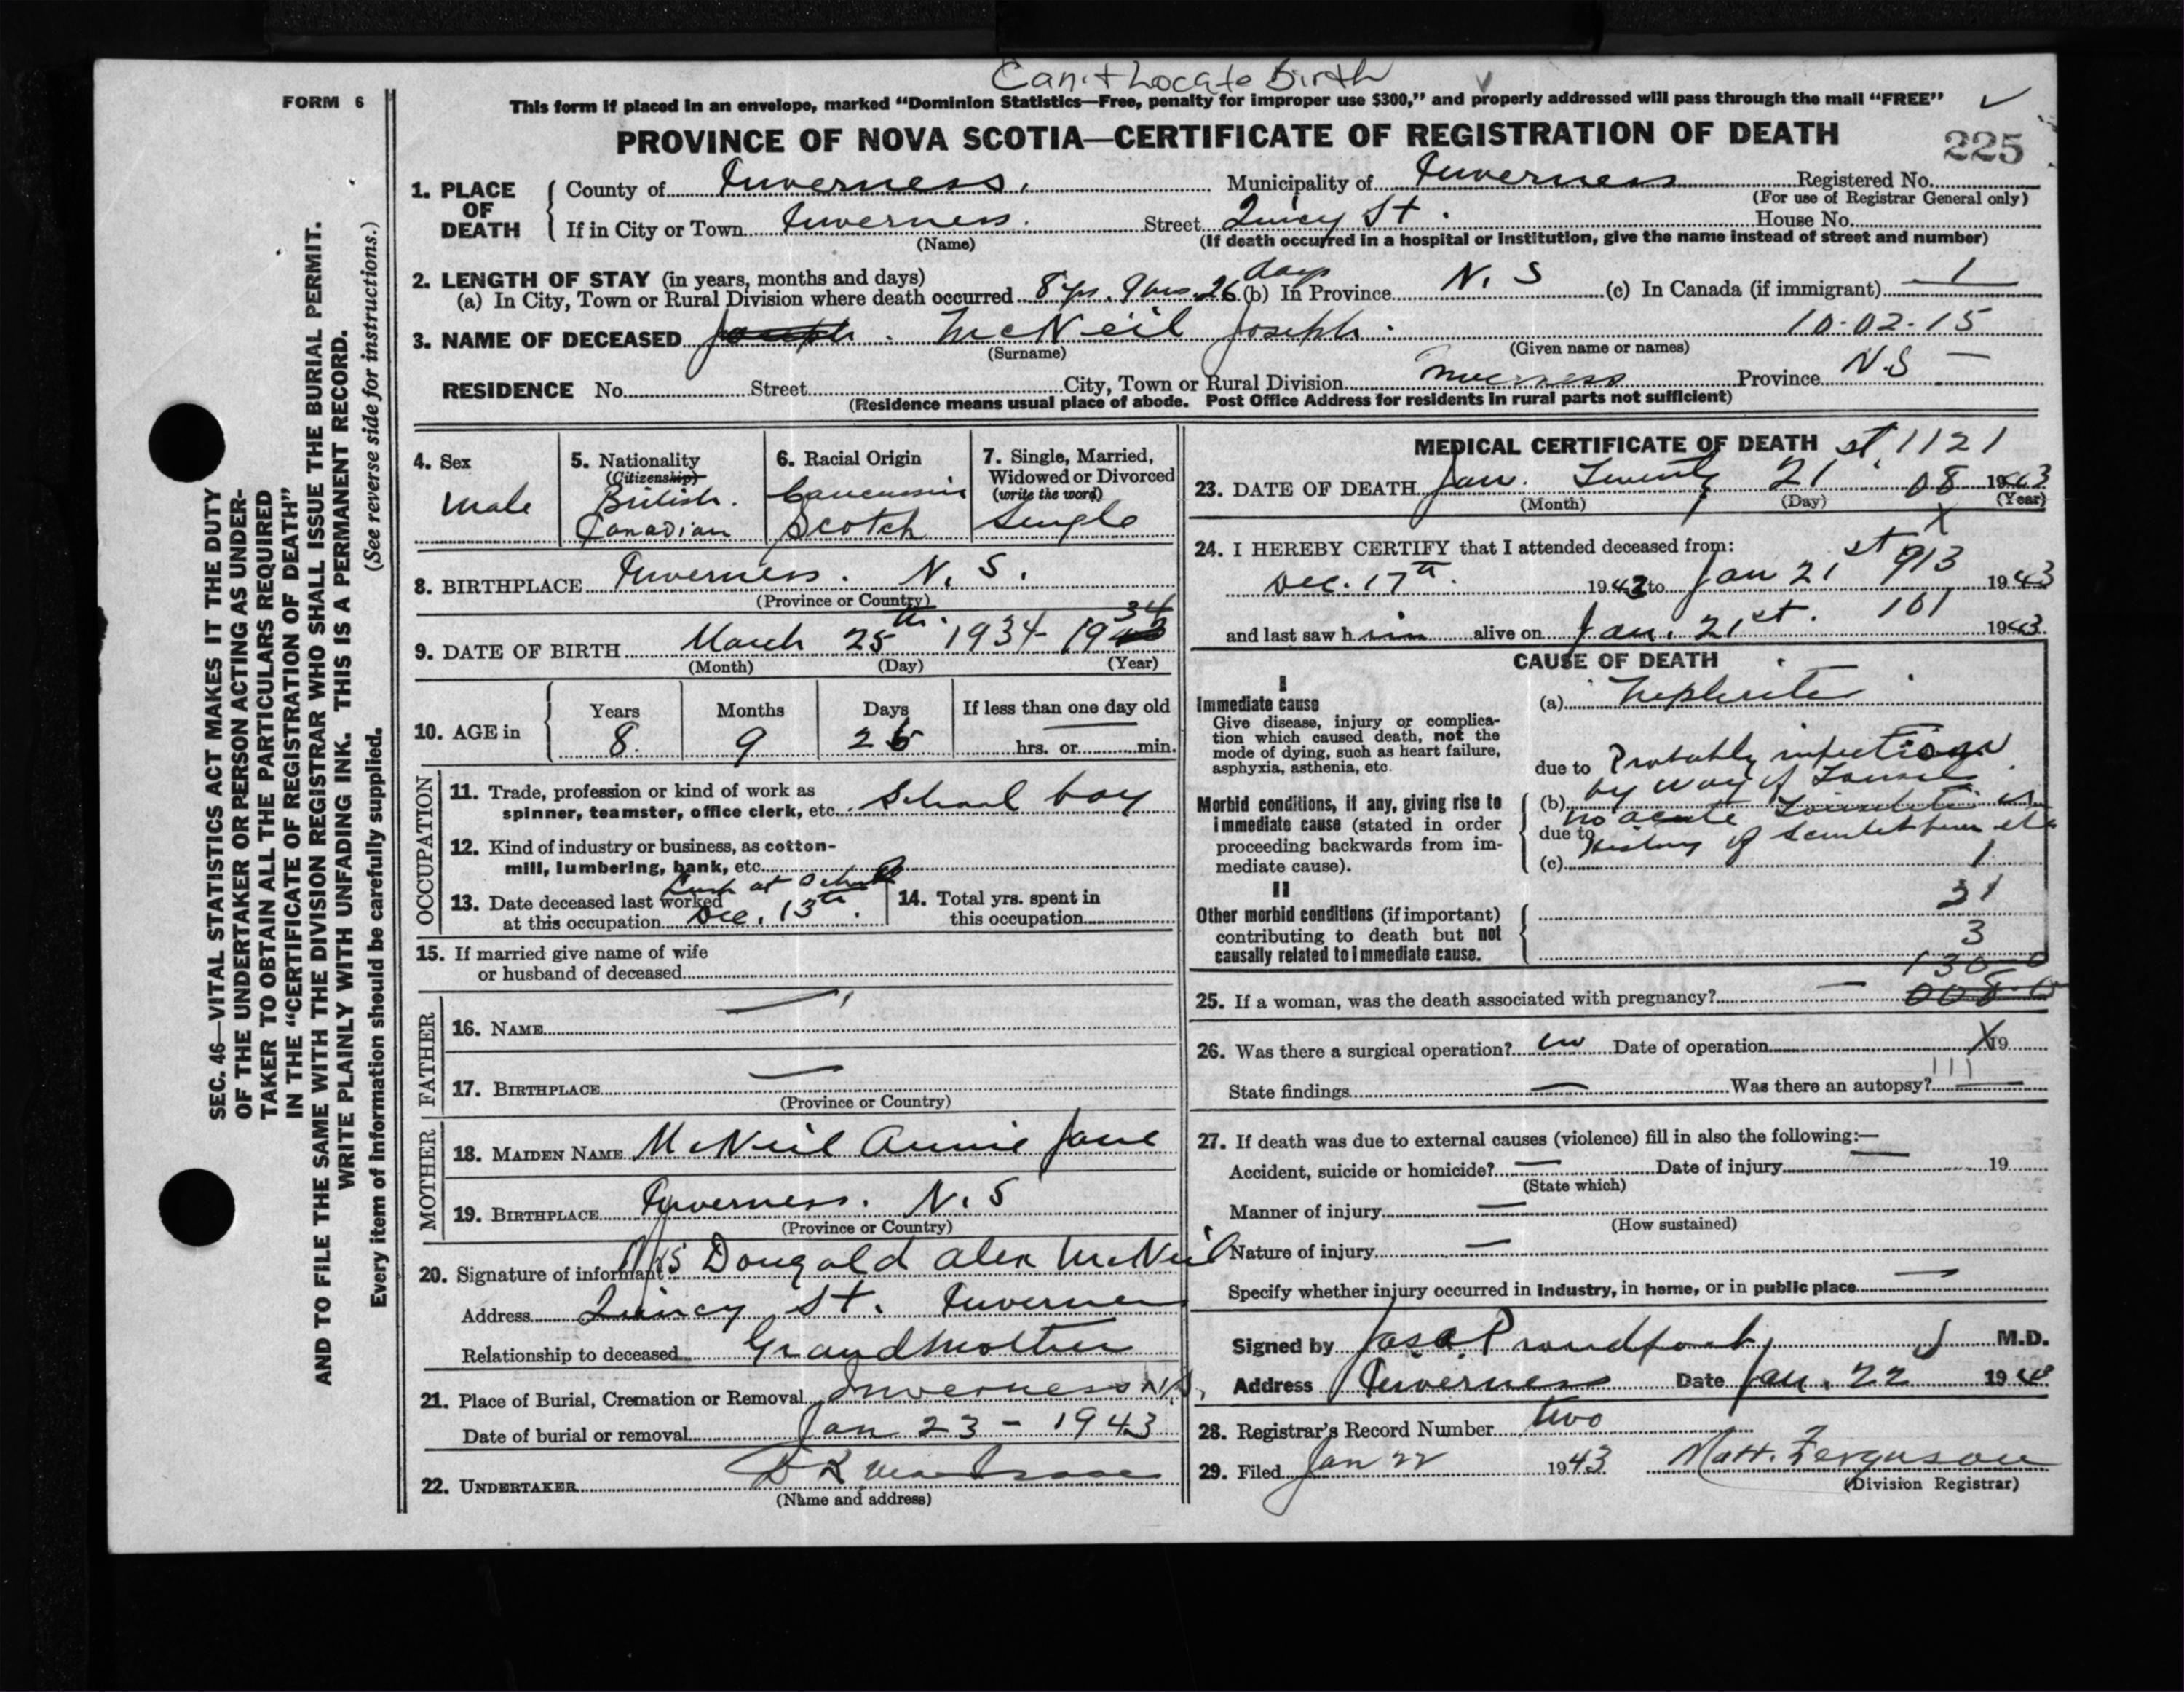 Can't Locate Birth
FORM 6
This form if placed in an envelope, marked “Dominion Statistics—Free, penalty for improper use $300,” and properly addressed will pass through the mail “FREE”
PROVINCE OF NOVA SCOTIA—CERTIFICATE OF REGISTRATION OF DEATH
225
1. PLACE OF DEATH
County of Inverness. Municipality of Inverness Registered No.
(For use of Registrar General only)
If in City or Town Inverness. Street Quincy St. House No.
(Name) (If death occurred in a hospital or institution, give the name instead of street and number)
2. LENGTH OF STAY (in years, months and days)
(a) In City, Town or Rural Division where death occurred 8 yrs. 9 mos 26 days (b) In Province N. S (c) In Canada (if immigrant) 1
3. NAME OF DECEASED Joseph. McNeil Joseph. 10-02-15
(Surname) (Given name or names)
RESIDENCE No. Street City, Town or Rural Division Inverness Province N.S —
(Residence means usual place of abode. Post Office Address for residents in rural parts not sufficient)
4. Sex
Male
5. Nationality
(Citizenship)
British.
Canadian
6. Racial Origin
Caucassin
Scotch
7. Single, Married,
Widowed or Divorced
(write the word)
Single
8. BIRTHPLACE Inverness. N. S.
(Province or Country)
9. DATE OF BIRTH March 25th. 1934- 1934
(Month) (Day) (Year)
10. AGE in
Years Months Days If less than one day old
8. 9 26 hrs. or min.
OCCUPATION
11. Trade, profession or kind of work as
spinner, teamster, office clerk, etc. School boy
12. Kind of industry or business, as cotton-
mill, lumbering, bank, etc.
13. Date deceased last worked
at this occupation Dec. 13th.
14. Total yrs. spent in
this occupation
15. If married give name of wife
or husband of deceased
FATHER
16. NAME —
17. BIRTHPLACE —
(Province or Country)
MOTHER
18. MAIDEN NAME McNeil Annie Jane
19. BIRTHPLACE Inverness. N. S
(Province or Country)
20. Signature of informant Mrs Dougald Alex McNeil
Address Quincy St. Inverness
Relationship to deceased Grandmother
21. Place of Burial, Cremation or Removal Inverness N.S.
Date of burial or removal Jan 23 - 1943
22. UNDERTAKER
(Name and address)
MEDICAL CERTIFICATE OF DEATH 1121
23. DATE OF DEATH Jan. Twenty 21st 08 1943
(Month) (Day) (Year)
24. I HEREBY CERTIFY that I attended deceased from:
Dec. 17th. 1942 to Jan 21st 913 1943
and last saw him alive on Jan. 21st. 101 1943
CAUSE OF DEATH
I
Immediate cause
Give disease, injury or complica-
tion which caused death, not the
mode of dying, such as heart failure,
asphyxia, asthenia, etc.
(a) Nephritis
due to Probably infectious
Morbid conditions, if any, giving rise to
immediate cause (stated in order
proceeding backwards from im-
mediate cause).
(b) by way of Tonsils
no acute Tonsilitis or
due to history of Scarlet fever etc
(c) 1
II
Other morbid conditions (if important)
contributing to death but not
causally related to immediate cause.
31
3
130-0
25. If a woman, was the death associated with pregnancy? — 008-0
26. Was there a surgical operation? no Date of operation X 19
State findings — Was there an autopsy? —
111
27. If death was due to external causes (violence) fill in also the following:—
Accident, suicide or homicide? — Date of injury — 19
(State which)
Manner of injury —
(How sustained)
Nature of injury —
Specify whether injury occurred in industry, in home, or in public place —
Signed by Jas. A. Proudfoot M.D.
Address Inverness Date Jan. 22 1943
28. Registrar's Record Number two
29. Filed Jan 22 1943 Matt. Ferguson
(Division Registrar)
SEC. 46—VITAL STATISTICS ACT MAKES IT THE DUTY
OF THE UNDERTAKER OR PERSON ACTING AS UNDER-
TAKER TO OBTAIN ALL THE PARTICULARS REQUIRED
IN THE “CERTIFICATE OF REGISTRATION OF DEATH”
AND TO FILE THE SAME WITH THE DIVISION REGISTRAR WHO SHALL ISSUE THE BURIAL PERMIT.
WRITE PLAINLY WITH UNFADING INK. THIS IS A PERMANENT RECORD.
Every item of information should be carefully supplied. (See reverse side for instructions.)